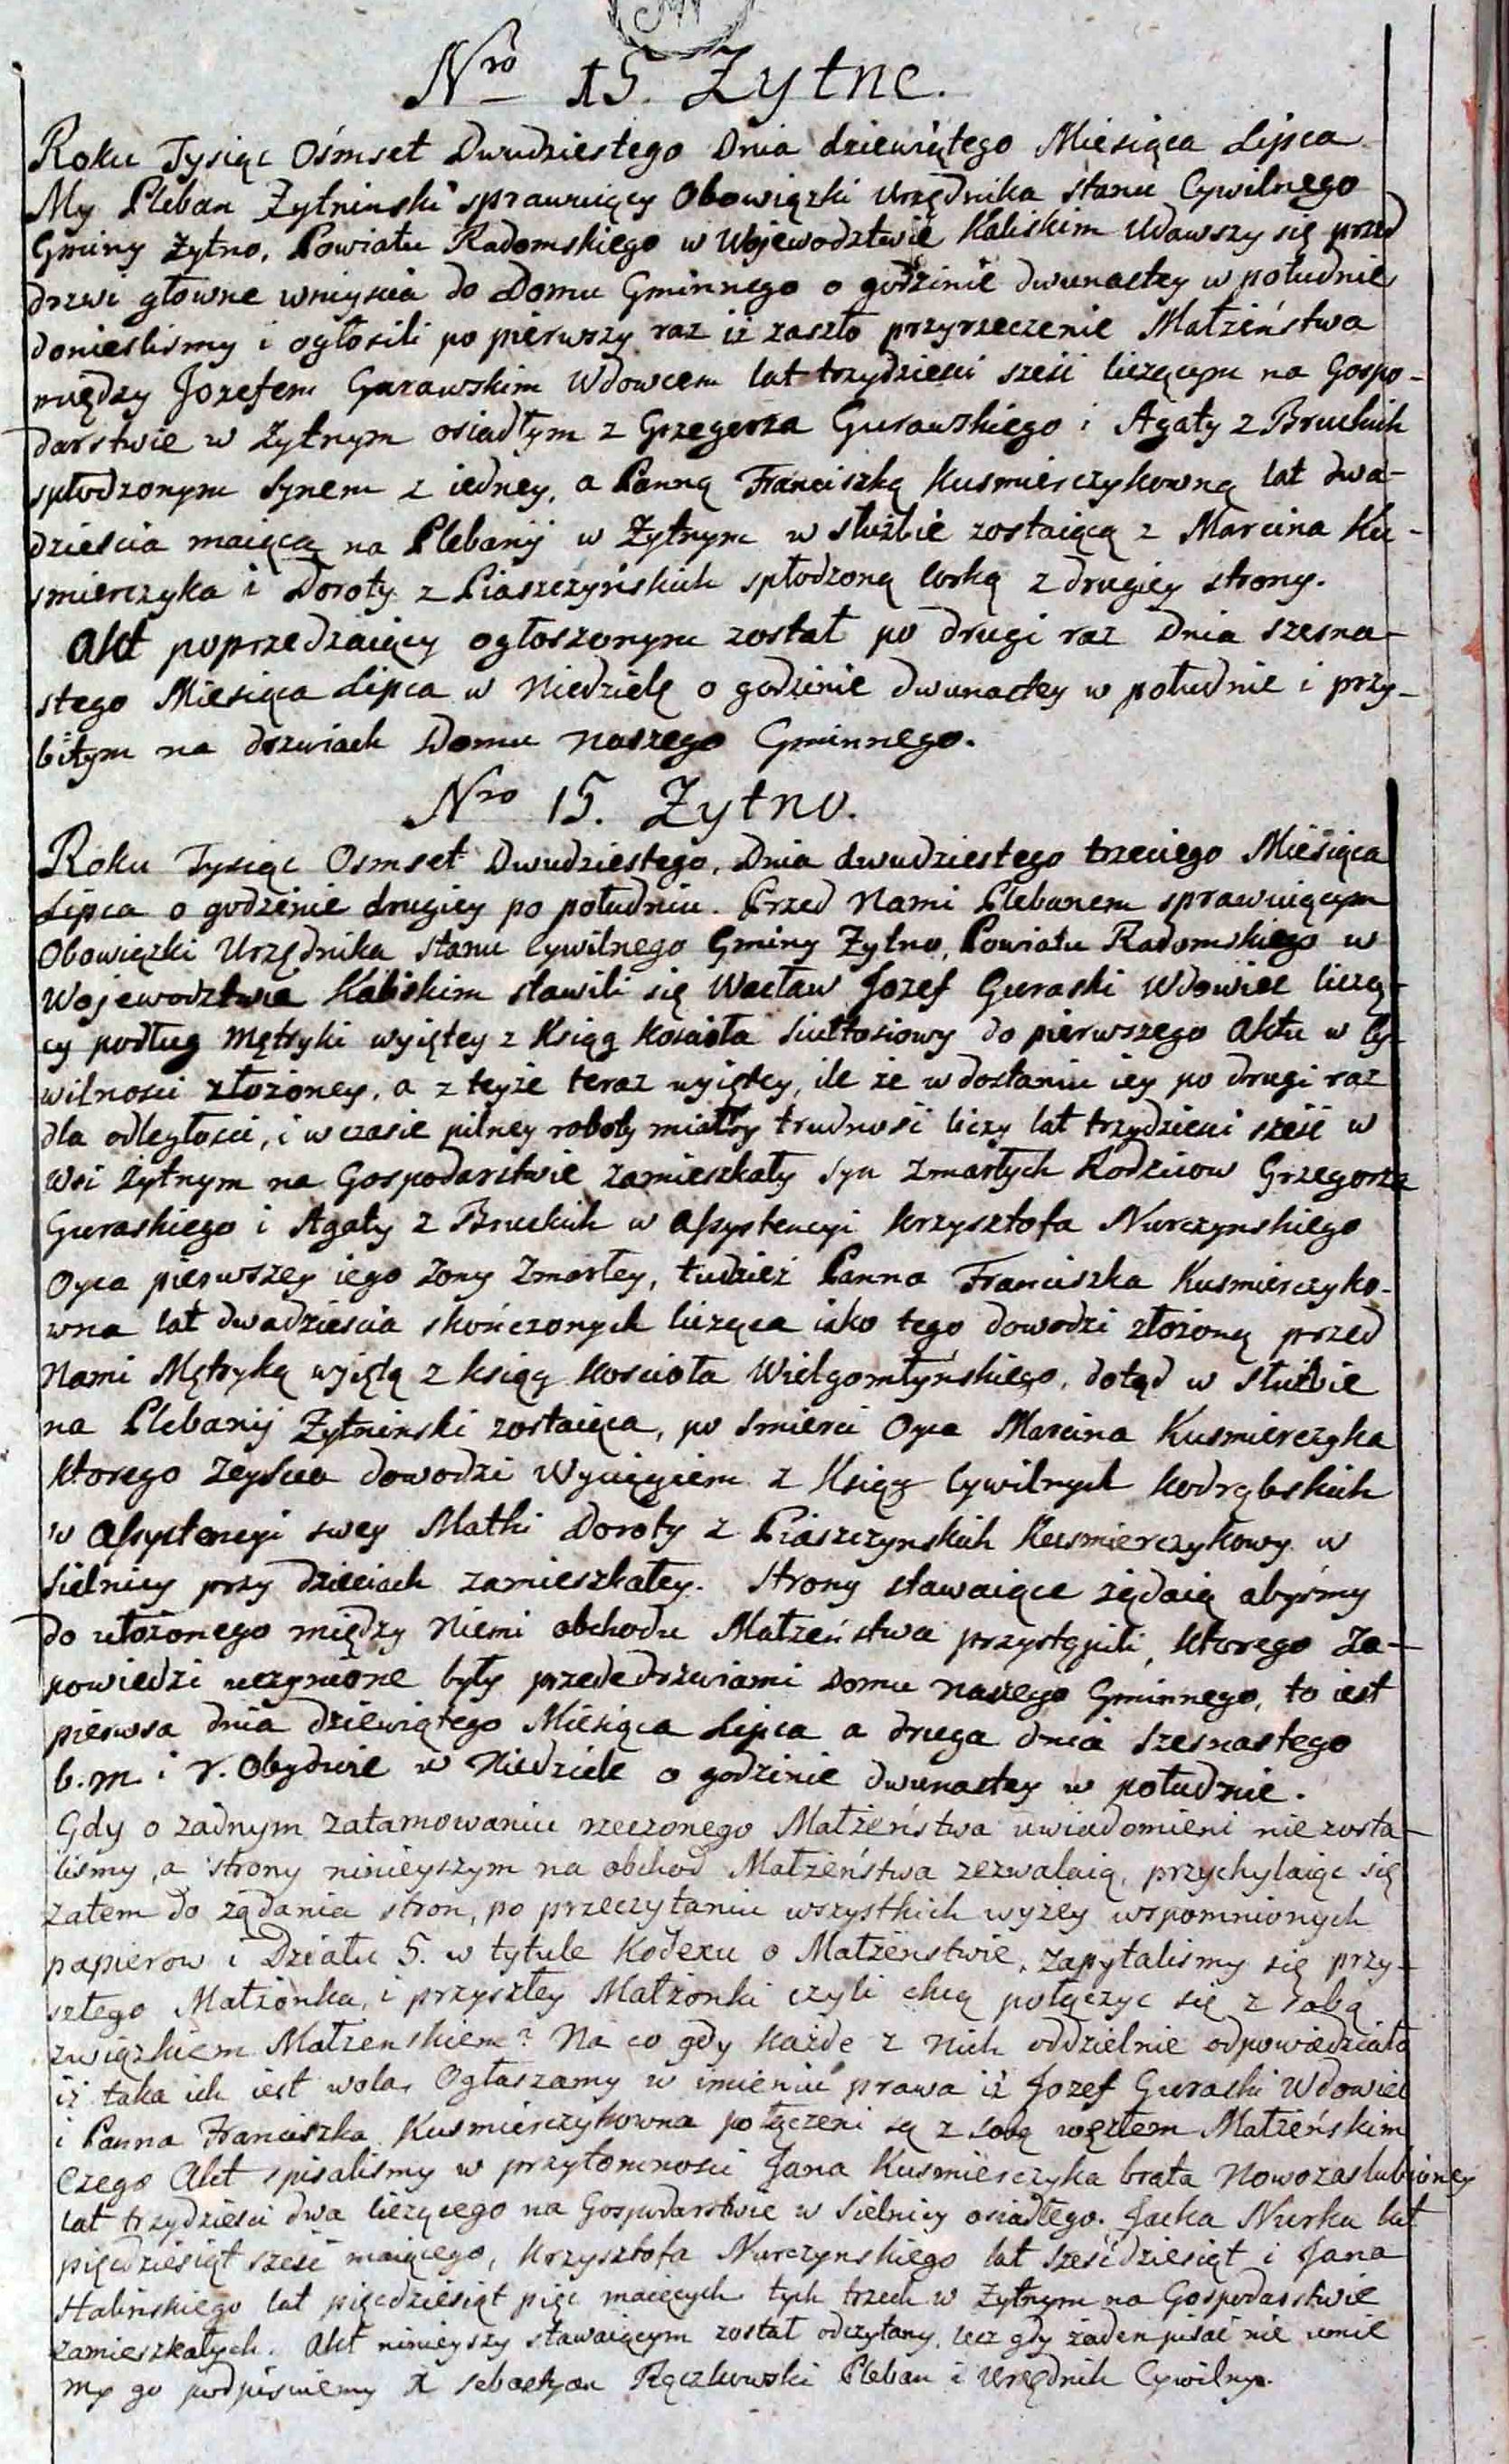 Nro 15. Żytne.
Roku Tysiąc Ośmset Dwudziestego Dnia dziewiątego Miesiąca Lipca
My Pleban Żytninski sprawuiący Obowiązki Urzędnika stanu Cywilnego
Gminy Żytno, Powiatu Radomskiego w Wojewodztwie Kaliskim Udawszy się przed
drzwi głowne wniyscia do Domu Gminnego o godzinie dwunastey w południe
donieslismy i ogłosili po pierwszy raz iż zaszło przyrzeczenie Małżeństwa
między Jozefem Gurawskim Wdowcem lat trzydzieści sześć liczącym na Gospo-
darstwie w Żytnym osiadłym z Grzegorza Gurawskiego i Agaty z Bruckich
spłodzonym Synem z iedney, a Panną Franciszką Kusmierczykowną lat dwa-
dzieścia maiącą na Plebanij w Żytnym w służbie zostaiącą z Marcina Ku-
smierczyka i Doroty z Piaszczyńskich spłodzoną Corką z drugiey strony.
Akt poprzedzaiący ogłoszonym został po drugi raz Dnia szesna-
stego Miesiąca Lipca w Niedzielę o godzinie dwunastey w południe i przy-
bitym na drzwiach Domu naszego Gminnego.
Nro 15. Żytno.
Roku Tysiąc Osmset Dwudziestego, Dnia dwudziestego trzeciego Miesiąca
Lipca o godzinie drugiey po południu. Przed Nami Plebanem sprawuiącym
Obowiązki Urzędnika stanu Cywilnego Gminy Żytno, Powiatu Radomskiego w
Wojewodztwie Kaliskim stawili się Wacław Jozef Guraski Wdowiec liczą-
cy podług Mętryki wyiętey z Ksiąg Kosciota do pierwszego Aktu w Cy-
wilnosci złożoney, a z teyże teraz wyiętey, ile że w dostaniu iey po drugi raz
dla odległosci, i w czasie pilney roboty miałby trudność liczy lat trzydzieści sześć w
Wsi Żytnym na Gospodarstwie zamieszkały Syn Zmarłych Rodzicow Grzegorza
Guraskiego i Agaty z Bruckich w Assystencyi Krzysztofa Nurczynskiego
Oyca pierwszey iego żony Zmarłey, tudzież Panna Franciszka Kusmierczyko-
wna lat dwadzieścia skończonych licząca iako tego dowodzi złożoną przed
Nami Mętryką wyiętą z ksiąg Kościoła Wielgomłyńskiego, dotąd w służbie
na Plebanij Żytninski zostaiąca, po śmierci Oyca Marcina Kusmierczyka
ktorego Zeyścia dowodzi Wyciągiem z Ksiąg Cywilnych Kodrąbskich
w Assystencyi swey Matki Doroty z Piaszczynskich Kusmierczykowy w
Sielnicy przy dzieciach zamieszkałey. Strony stawaiące żądaią abyśmy
do ułożonego między Niemi obchodu Małżeństwa przystąpili, ktorego Za-
powiedzi uczynione były przede drzwiami Domu naszego Gminnego, to iest
pierwsa dnia dziewiątego Miesiąca Lipca a druga dnia szesnastego
b. m. i r. Obydwie w Niedziele o godzinie dwunastey w południe.
Gdy o żadnym zatamowaniu rzeczonego Małżeństwa uwiadomieni nie zosta-
liśmy, a strony ninieyszym na obchod Małżeństwa zezwalaią, przychylaiąc się
zatem do żądania stron, po przeczytaniu wszystkich wyżey wspomnionych
papierow i Działu 5. w tytule Kodexu o Małżenstwie, Zapytalismy się przy-
szłego Małżonka, i przyszłey Małżonki czyli chcą połączyc się z sobą
związkiem Małżenskiem? Na co gdy każde z nich oddzielnie odpowiedziało
iż taka ich iest wola, Ogłaszamy w imieniu prawa iż Jozef Guraski Wdowiec
i Panna Franciszka Kusmierczykowna połączeni są z sobą węzłem Małżeńskim
Czego Akt spisalismy w przytomnosci Jana Kusmierczyka brata Nowozaslubioney
lat trzydziesci dwa liczącego na Gospodarstwie w Sielnicy osiadłego. Jacka Nurka lat
pięcdziesiąt sześć maiącego, Krzysztofa Nurczynskiego lat sześcdziesiąt i Jana
Halinskiego lat pięcdziesiąt pięc maiących tych trzech w Żytnym na Gospodarstwie
zamieszkałych. Akt ninieyszy stawaiącym został odczytany, lecz gdy żaden pisać nie umie
my go podpisuiemy X Sebastyan Pleban i Urzędnik Cywilny.